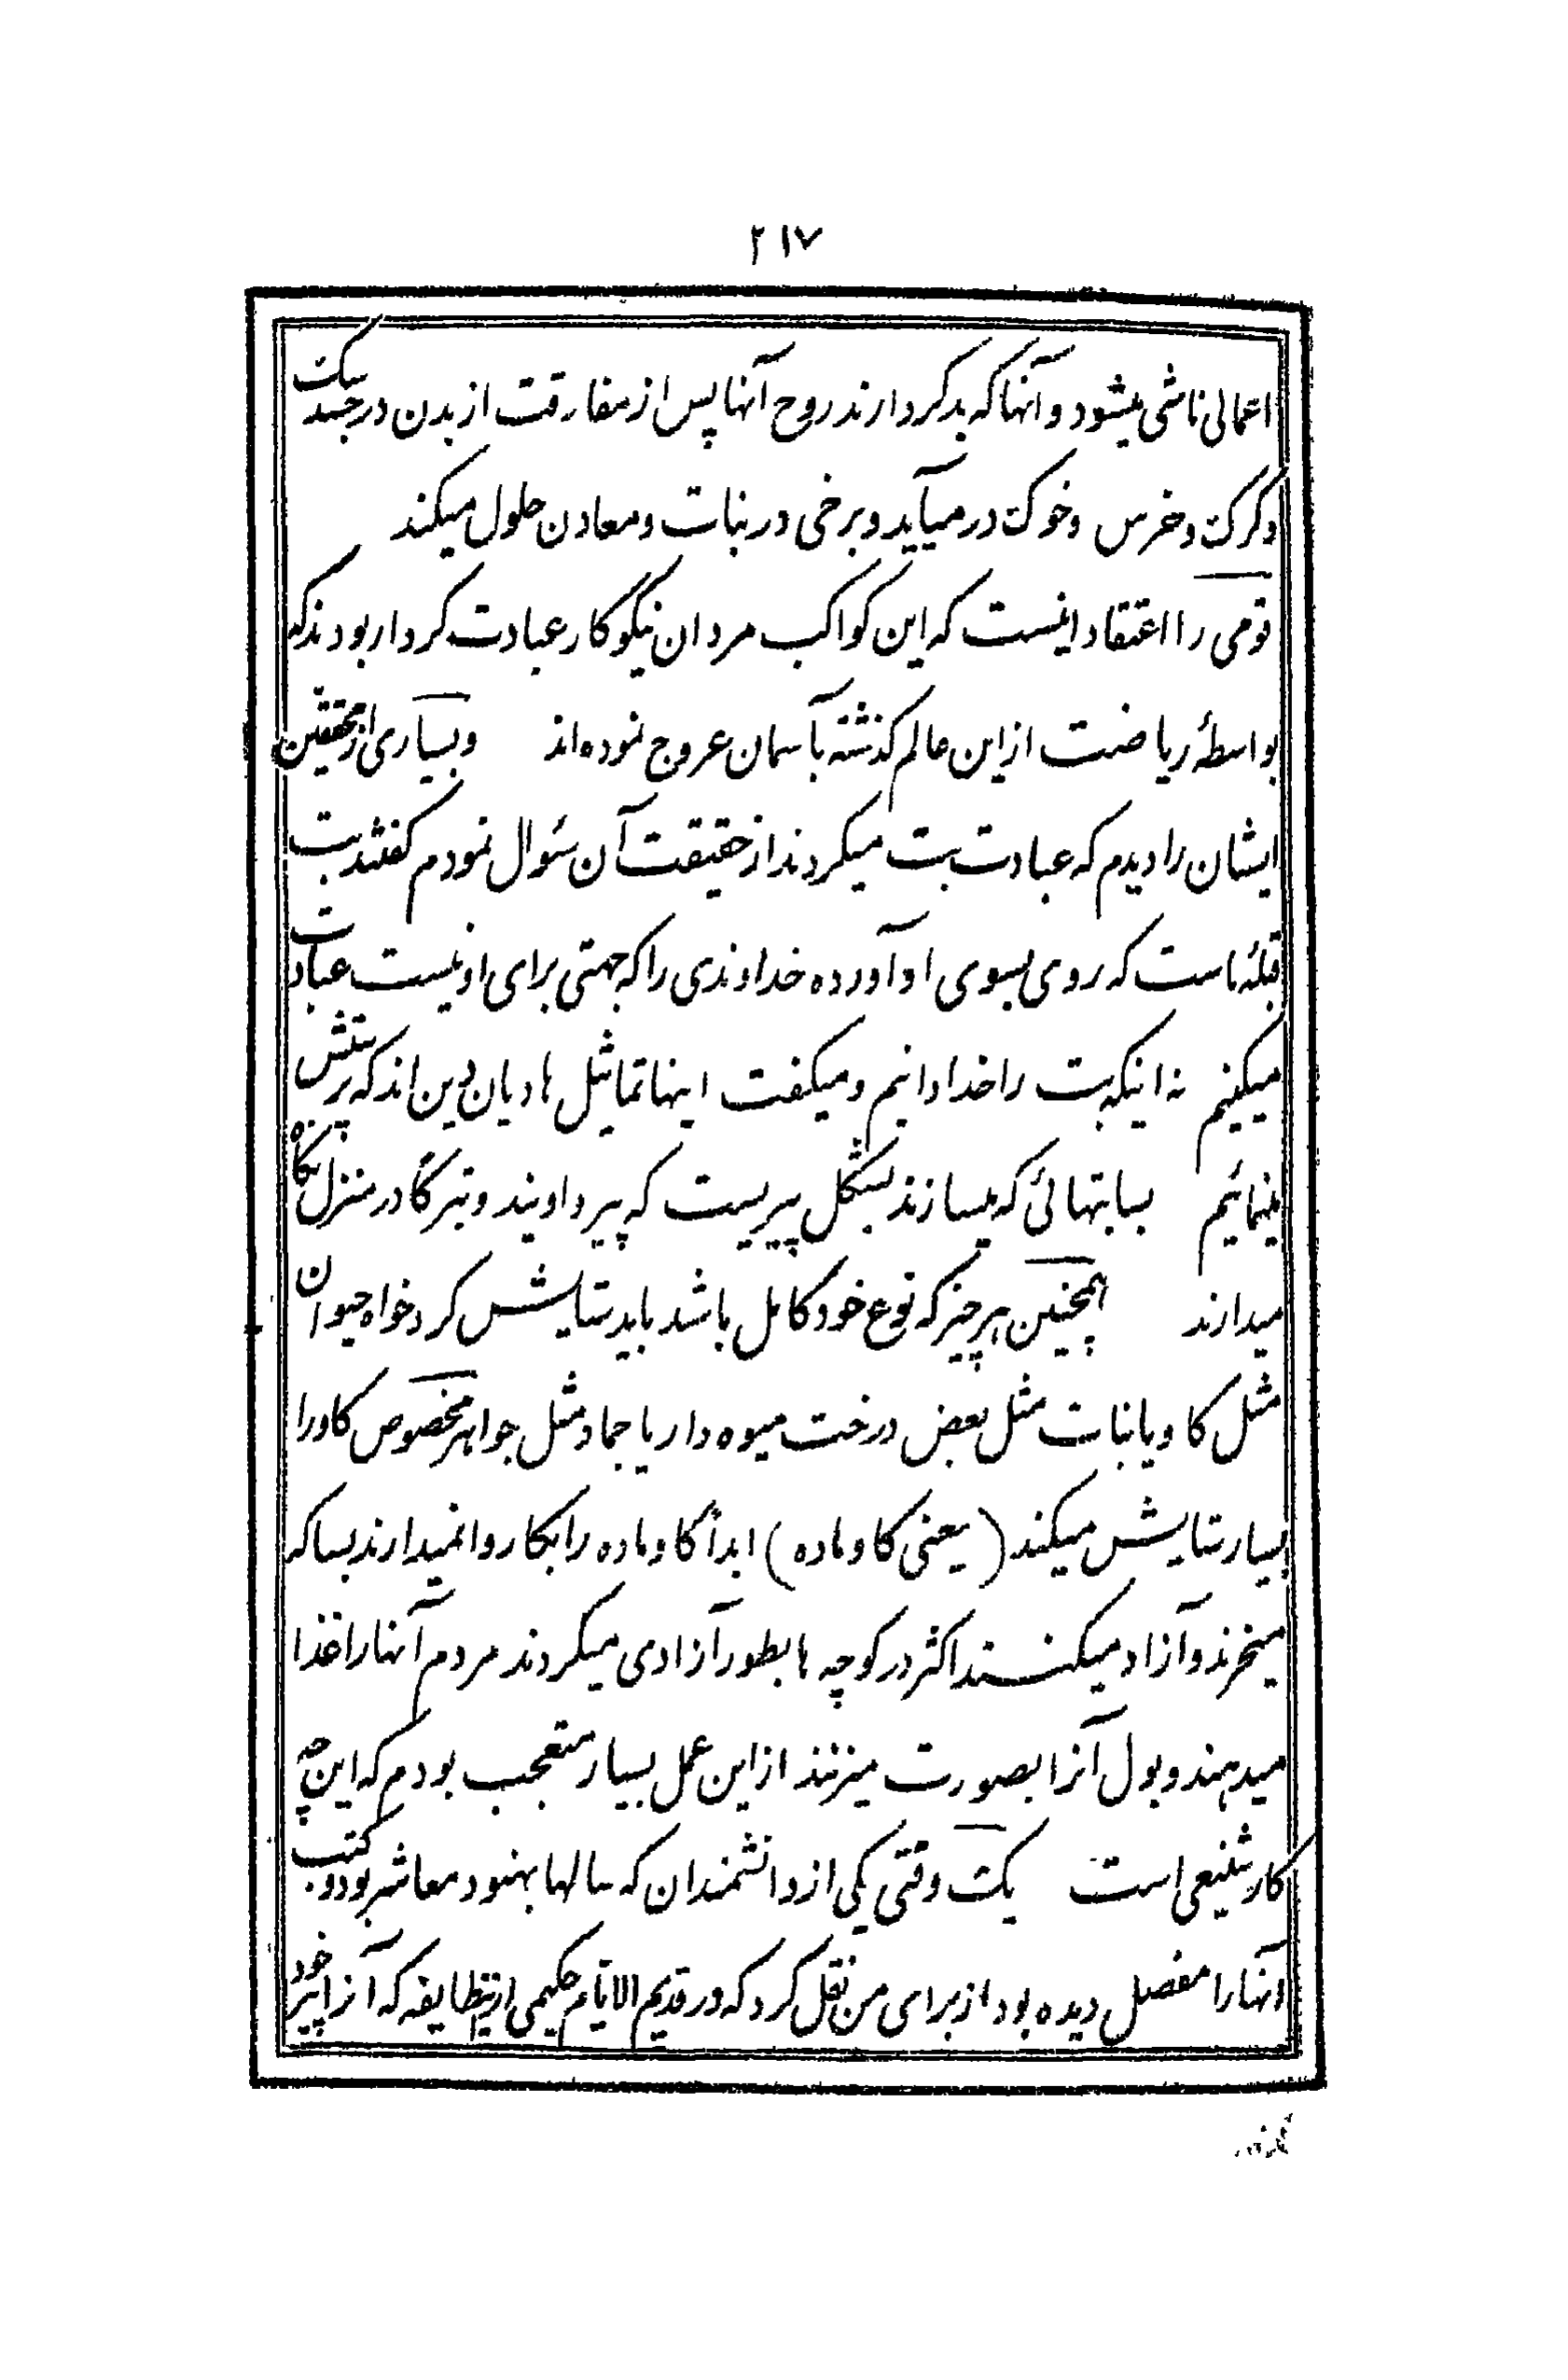 ۲۱۷
اعمالی ناشی میشود و آنها که بدکردارند روح آنها پس از مفارقت از بدن در جسد سگ
و گرگ و خرس و خوک در میآید و برخی در نبات و معادن حلول میکند
قومی را اعتقاد اینست که این کواکب مردان نیکوکار عبادت کردار بودند که
بواسطهٔ ریاضت از این عالم گذشته بآسمان عروج نموده‌اند و بسیاری از محققین
ایشان را دیدم که عبادت بت میکردند از حقیقت آن سئوال نمودم گفتند بت
قبلهٔ ماست که روی بسوی او آورده خداوندی را که جهتی برای او نیست عبادت
میکنیم نه اینکه بت را خدا دانیم و میگفت اینها تماثیل هادیان دین‌اند که پرستش
مینمائیم بسا بتهائی که میسازند بشکل پیریست که پیرو اویند و تبرکاً در منزل نگاه
میدارند همچنین هر چیز که نوع خود کامل باشد باید ستایش کرد خواه حیوان
مثل گاو یا نبات مثل بعض درخت میوه‌دار یا جماد مثل جواهر مخصوص گاو را
بسیار ستایش میکند (یعنی گاو ماده) ابداً گاو ماده را بکار وا نمیدارند بسا که
میخرند و آزاد میکنند اکثر در کوچه‌ها بطور آزادی میگردند مردم آنها را غذا
میدهند و بول آنرا بصورت میزنند از این عمل بسیار متعجب بودم که این چه
کار شنیعی است یک وقتی یکی از دانشمندان که سالها بهنود معاشر بود و کتب
آنها را مفصل دیده بود از برای من نقل کرد که در قدیم الایام حکیمی از اینطایفه که آنرا پیر خود